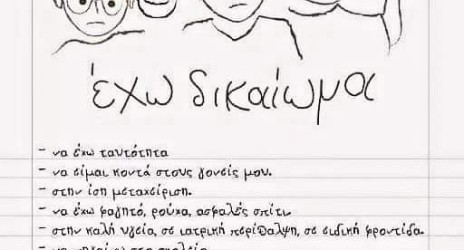 έχω δικαίωμα
- να έχω ταυτότητα
- να είμαι κοντά στους γονείς μου.
- στην ίση μεταχείριση.
- να έχω φαγητό, ρούχα, ασφαλές σπίτι.
- στην καλή υγεία, σε ιατρική περίθαλψη, σε ειδική φροντίδα.
- να πηγαίνω στο σχολείο